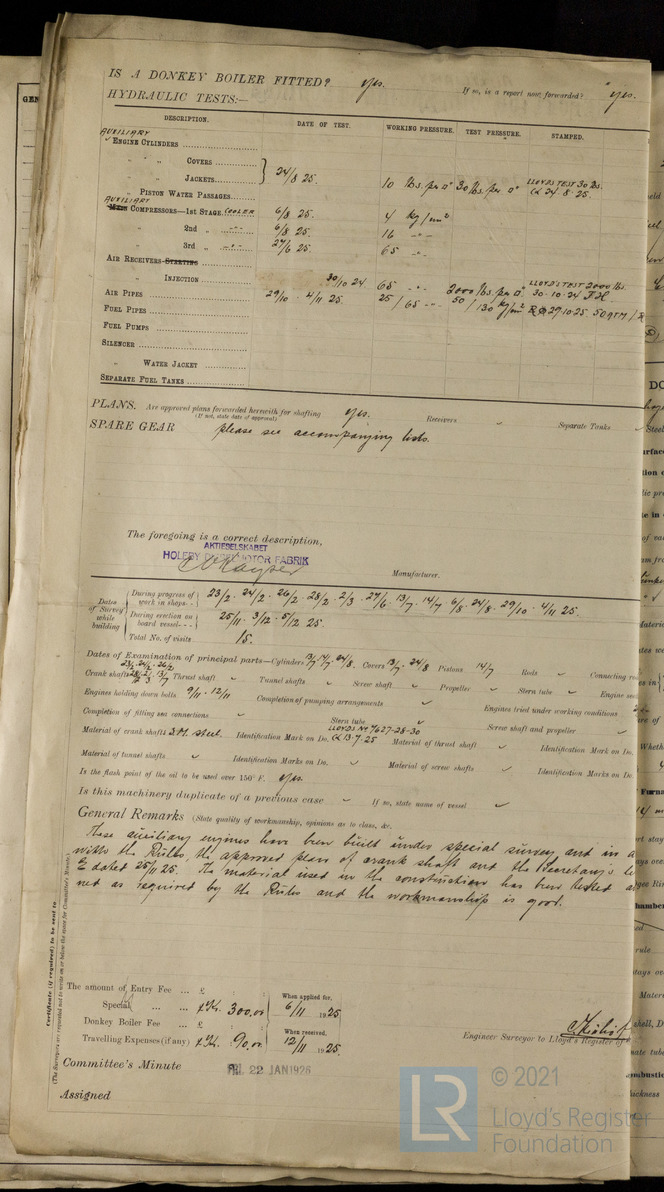 IS A DONKEY BOILER FITTED? Yes. If so, is a report now forwarded? Yes.
HYDRAULIC TESTS:—
DESCRIPTION. DATE OF TEST. WORKING PRESSURE. TEST PRESSURE. STAMPED.
AUXILIARY
ENGINE CYLINDERS
" " COVERS
" " JACKETS 24/8 25. 10 lbs. per □" 30 lbs. per □" LLOYD'S TEST 30 lbs.
" PISTON WATER PASSAGES 24.8.25.
AUXILIARY
MAIN COMPRESSORS—1st STAGE COOLER 6/8 25. 4 kg/cm²
" 2nd " -"- 6/8 25. 16 -"-
" 3rd " -"- 27/6 25. 65 -"-
AIR RECEIVERS—STARTING
" INJECTION 30/10 24 65 -"- 2000 lbs. per □" LLOYD'S TEST 2000 lbs.
30.10.24
AIR PIPES 29/10 4/11 25. 25/65 -"- 50/130 kg/cm² 29.10.25 50 ATM
FUEL PIPES
FUEL PUMPS
SILENCER
" WATER JACKET
SEPARATE FUEL TANKS
PLANS. Are approved plans forwarded herewith for shafting Yes. Receivers ✓ Separate Tanks ✓
(If not, state date of approval)
SPARE GEAR please see accompanying lists.
The foregoing is a correct description,
AKTIESELSKABET
HOLEBY DIESELMOTOR FABRIK
Manufacturer.
Dates of Survey while building
During progress of work in shops - - 23/2 . 24/2 . 26/2 . 28/2 . 2/3 . 27/6 . 13/7 . 14/7 . 6/8 . 24/8 . 29/10 . 4/11 25.
During erection on board vessel - - - 25/11 . 3/12 . 5/12 25.
Total No. of visits 15.
Dates of Examination of principal parts—Cylinders 13/7 14/7 24/8. Covers 13/7 . 24/8 Pistons 14/7 Rods ✓ Connecting ro
23/2 . 24/2 . 26/2
Crank shafts 28/2 2/3 13/7 Thrust shaft ✓ Tunnel shafts ✓ Screw shaft ✓ Propeller ✓ Stern tube ✓ Engine sea
Engines holding down bolts 9/11 . 12/11 Completion of pumping arrangements ✓ Engines tried under working conditions
Completion of fitting sea connections ✓ Stern tube ✓ Screw shaft and propeller ✓
Material of crank shafts S.M. steel. Identification Mark on Do. LLOYDS No 7627-28-30 13.7.25 Material of thrust shaft ✓ Identification Mark on Do.
Material of tunnel shafts ✓ Identification Marks on Do. ✓ Material of screw shafts ✓ Identification Marks on Do.
Is the flash point of the oil to be used over 150° F. Yes.
Is this machinery duplicate of a previous case ✓ If so, state name of vessel ✓
General Remarks (State quality of workmanship, opinions as to class, &c.
These auxiliary engines have been built under special survey and in a
with the Rules, the approved plan of crank shaft and the Secretary's le
E dated 25/11 25. The material used in the construction has been tested a
ned as required by the Rules and the workmanship is good.
Certificate (if required) to be sent to
(The Surveyors are requested not to write on or below the space for Committee's Minute.)
The amount of Entry Fee ... £ : : When applied for,
Special ... ... £ Kr. 300.00 6/11 1925
Donkey Boiler Fee ... £ : : When received,
Travelling Expenses (if any) £ Kr. 90.00 12/11 1925.
Engineer Surveyor to Lloyd's Register of
Committee's Minute FRI. 22 JAN 1926
Assigned
LR
© 2021
Lloyd's Register
Foundation